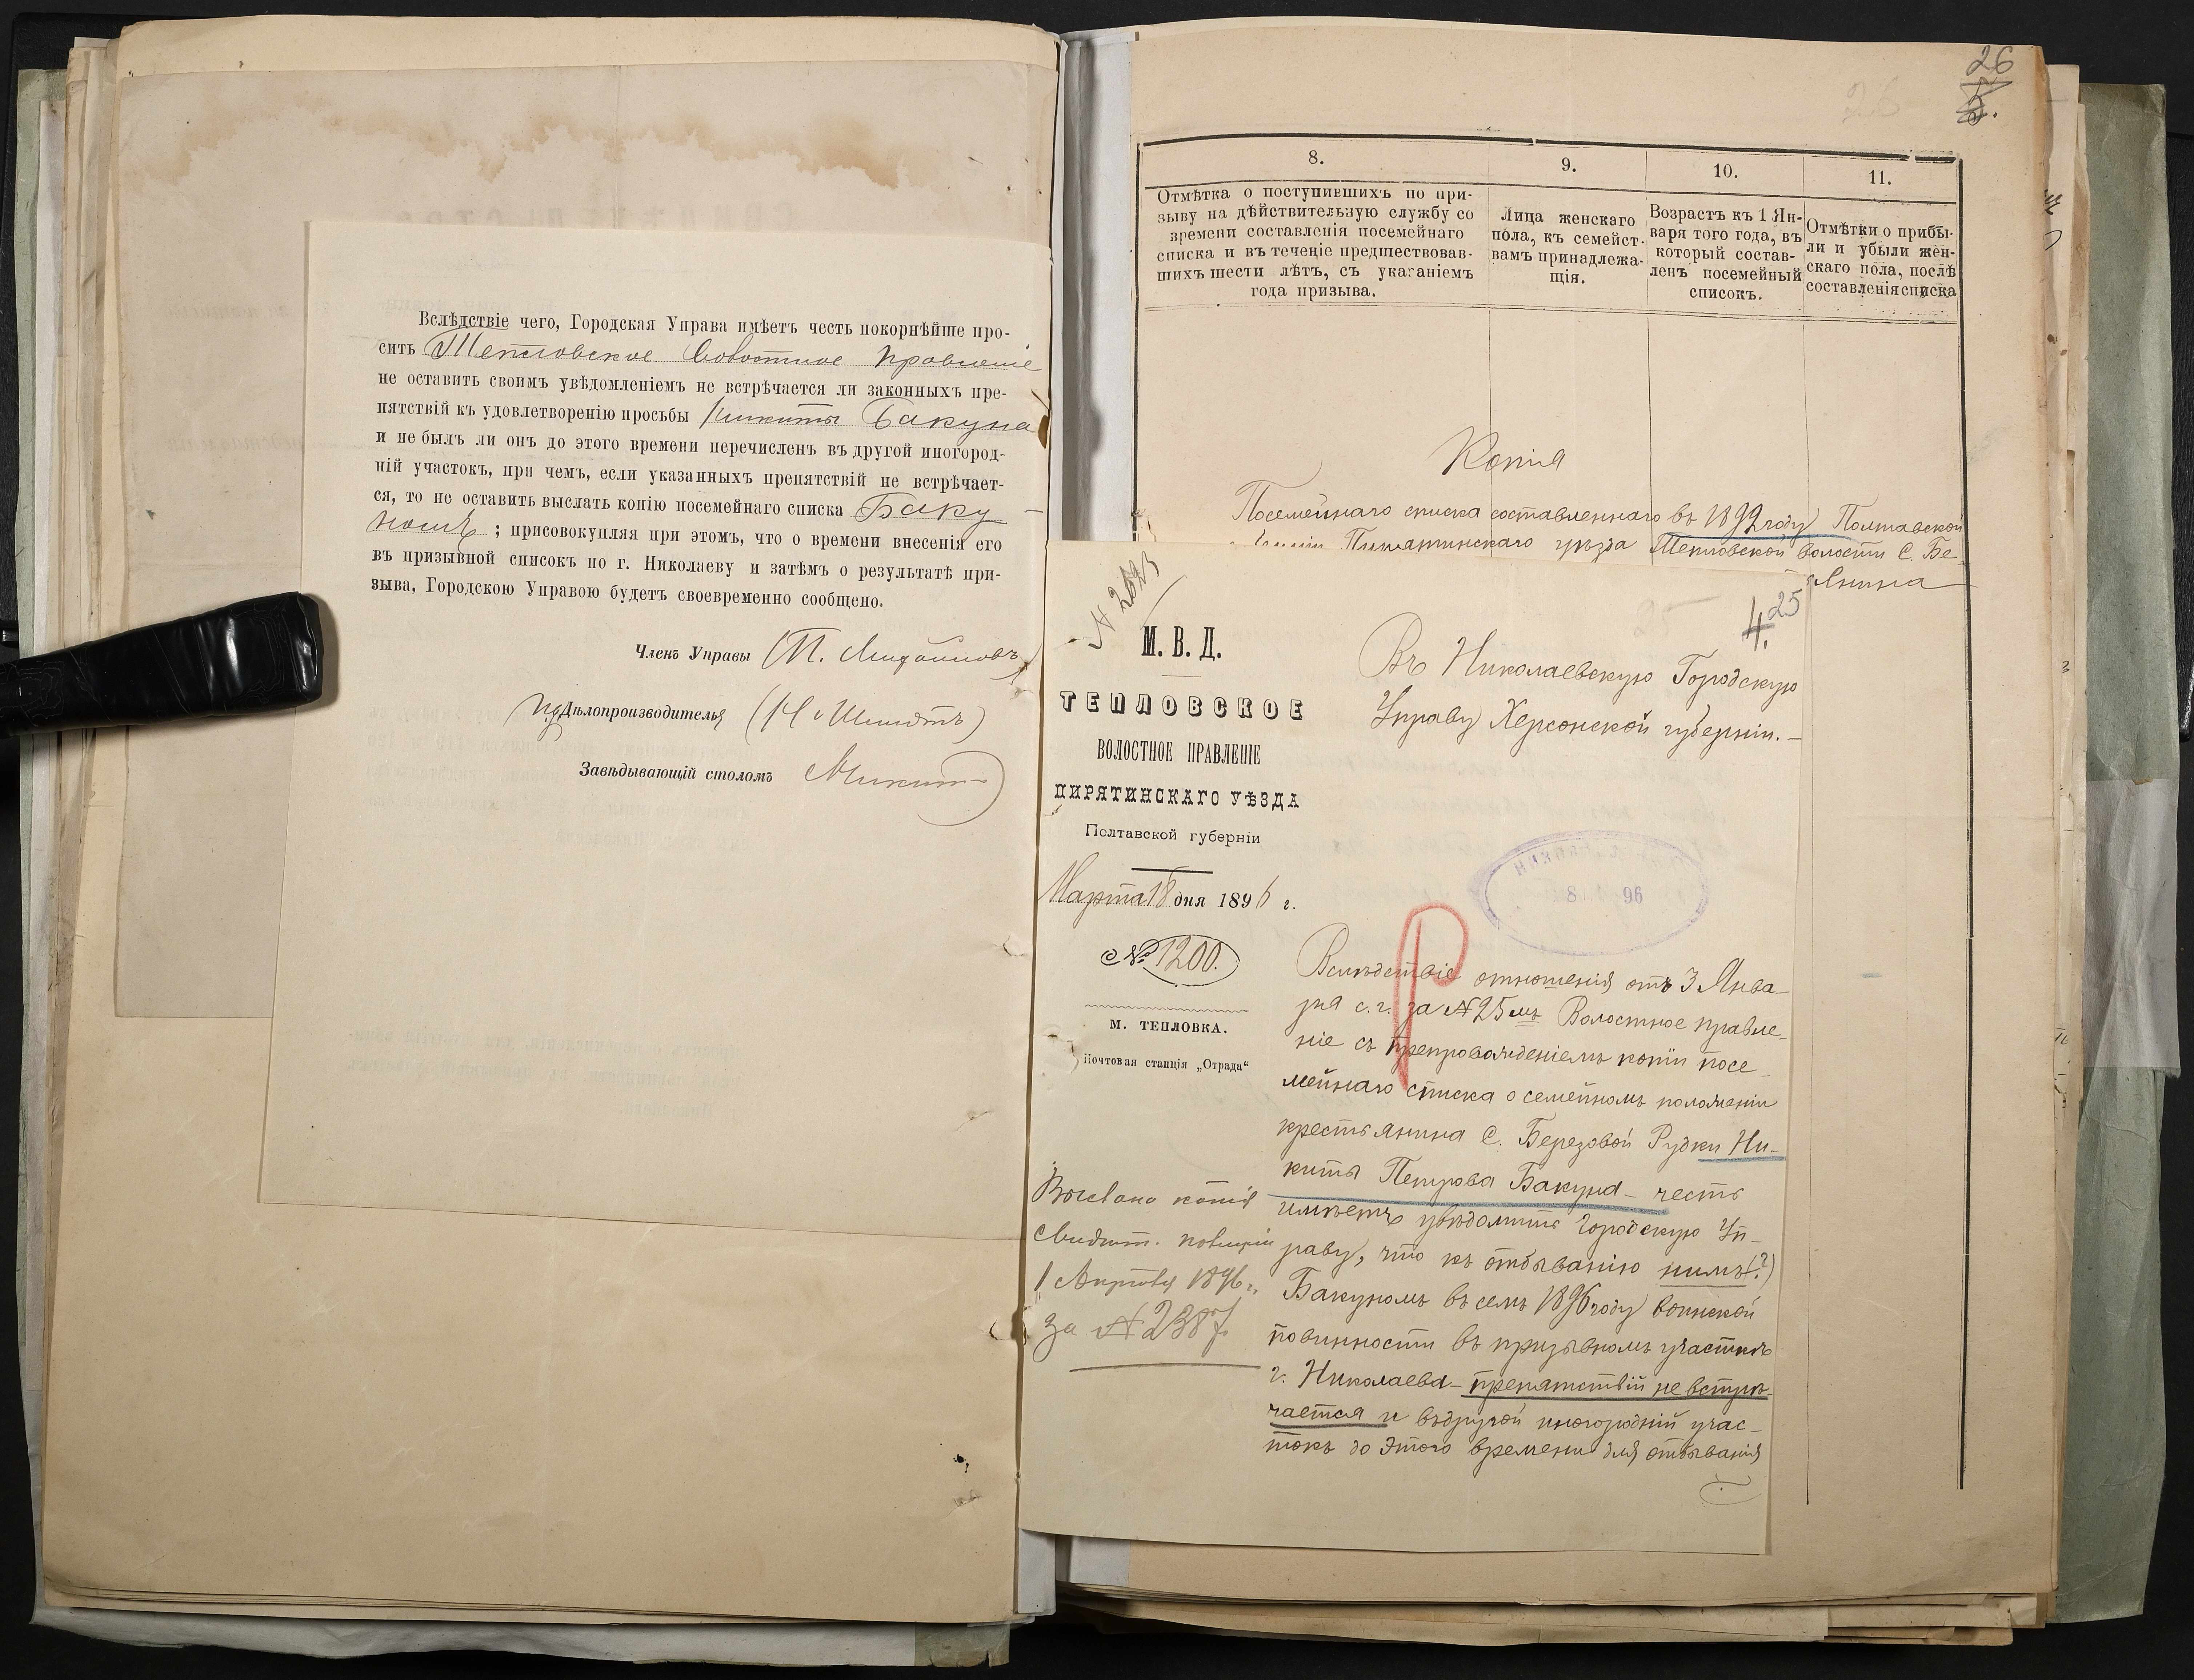 Вслѣдствіе чего, Городская Управа имѣетъ честь покорнѣйше про-
сить Тепловское Волостное Правленіе
не оставить своимъ увѣдомленіемъ не встрѣчается ли законныхъ пре-
пятствій къ удовлетворенію просьбы Никиты Бакуна
и не былъ ли онъ до этого времени перечисленъ въ другой иногород-
ній участокъ, при чемъ, если указанныхъ препятствій не встрѣчает-
ся, то не оставить выслать копію посемейнаго списка Баку-
номъ ; присовокупляя при этомъ, что о времени внесенія его
въ призывной списокъ по г. Николаеву и затѣмъ о результатѣ при-
зыва, Городскою Управою будетъ своевременно сообщено.
Членъ Управы
Дѣлопроизводителя
Завѣдывающій столомъ
26
8.
9.
10.
11.
Отмѣтка о поступившихъ по при-
зыву на дѣйствительную службу со
времени составленія посемейнаго
списка и въ теченіе предшествовав-
шихъ шести лѣтъ, съ указаніемъ
года призыва.
Лица женскаго
пола, къ семейст-
вамъ принадлежа-
щія.
Возрастъ къ 1 Ян-
варя того года, въ
который состав-
ленъ посемейный
списокъ.
Отмѣтки о прибы-
ли и убыли жен-
скаго пола, послѣ
составленія списка
Копія
Посемейнаго списка составленнаго въ 1892 году Полтавской
Пирятинскаго уѣзда Тепловской волости С. Бе-
25
4.
М. В. Д.
ТЕПЛОВСКОЕ
ВОЛОСТНОЕ ПРАВЛЕНІЕ
ПИРЯТИНСКАГО УѢЗДА
Полтавской губерніи
Марта 18 дня 1896 г.
№ 1200.
М. ТЕПЛОВКА.
Почтовая станція „Отрада“
Въ Николаевскую Городскую
Управу Херсонской губерніи.—
96
Вслѣдствіе отношенія отъ 3 Янва-
ря с. г. за № 25мъ Волостное правле-
ніе съ препровожденіемъ копіи посе-
мейнаго списка о семейномъ положеніи
крестьянина С. Березовой Рудки Ни-
киты Петрова Бакуна — честь
имѣетъ увѣдомить Городскую Уп-
раву, что къ отбыванію нимъ (?)
Бакуномъ въ семъ 1896 году воинской
повинности въ призывномъ участкѣ
г. Николаева — препятствій не встрѣ-
чается и въ другой иногородній учас-
токъ до этого времени для отбыванія
копія
Свидѣт.
1896 г.
за № 2387.